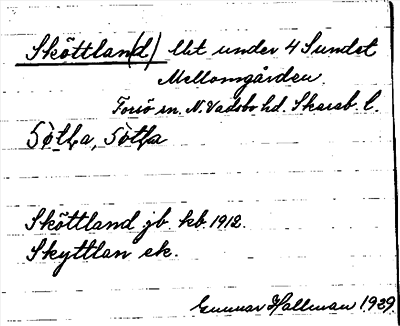 Sköttlan(d) lht under 4 Sundet
Mellomgården.
Torsö sn. N. Vadsbo hd. Skarab. l.
Sköttland jb. kb. 1912.
Skyttlan ek.
Gunnar Hallman 1929